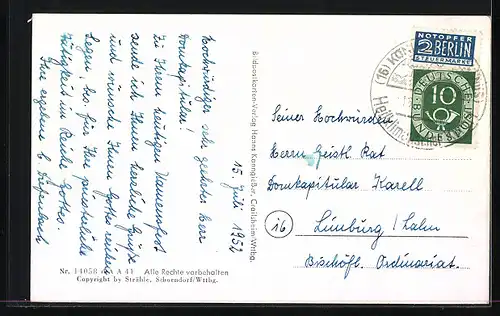 15. Juli 1952
Hochwürdiger, sehr geehrter Herr
Domkapitular!
Zu Ihrem heutigen Namensfest
sende ich Ihnen herzliche Grüße
und wünsche Ihnen Gottes reichen
Segen, bes. für Ihre priesterliche
Tätigkeit im Reiche Gottes.
Ihr ergebener
Nr. 14058 A 41 Alle Rechte vorbehalten
Copyright by Strähle, Schorndorf/Wttbg.
Bildpostkarten-Verlag Hannes Kanngießer, Crailsheim/Wttbg.
NOTOPFER
2 BERLIN
STEUERMARKE
DEUTSCHE BUNDESPOST
10
(16)
Seiner Hochwürden
Herrn Geistl. Rat
Domkapitular Karell
16 Limburg / Lahn
Bischöfl. Ordinariat.